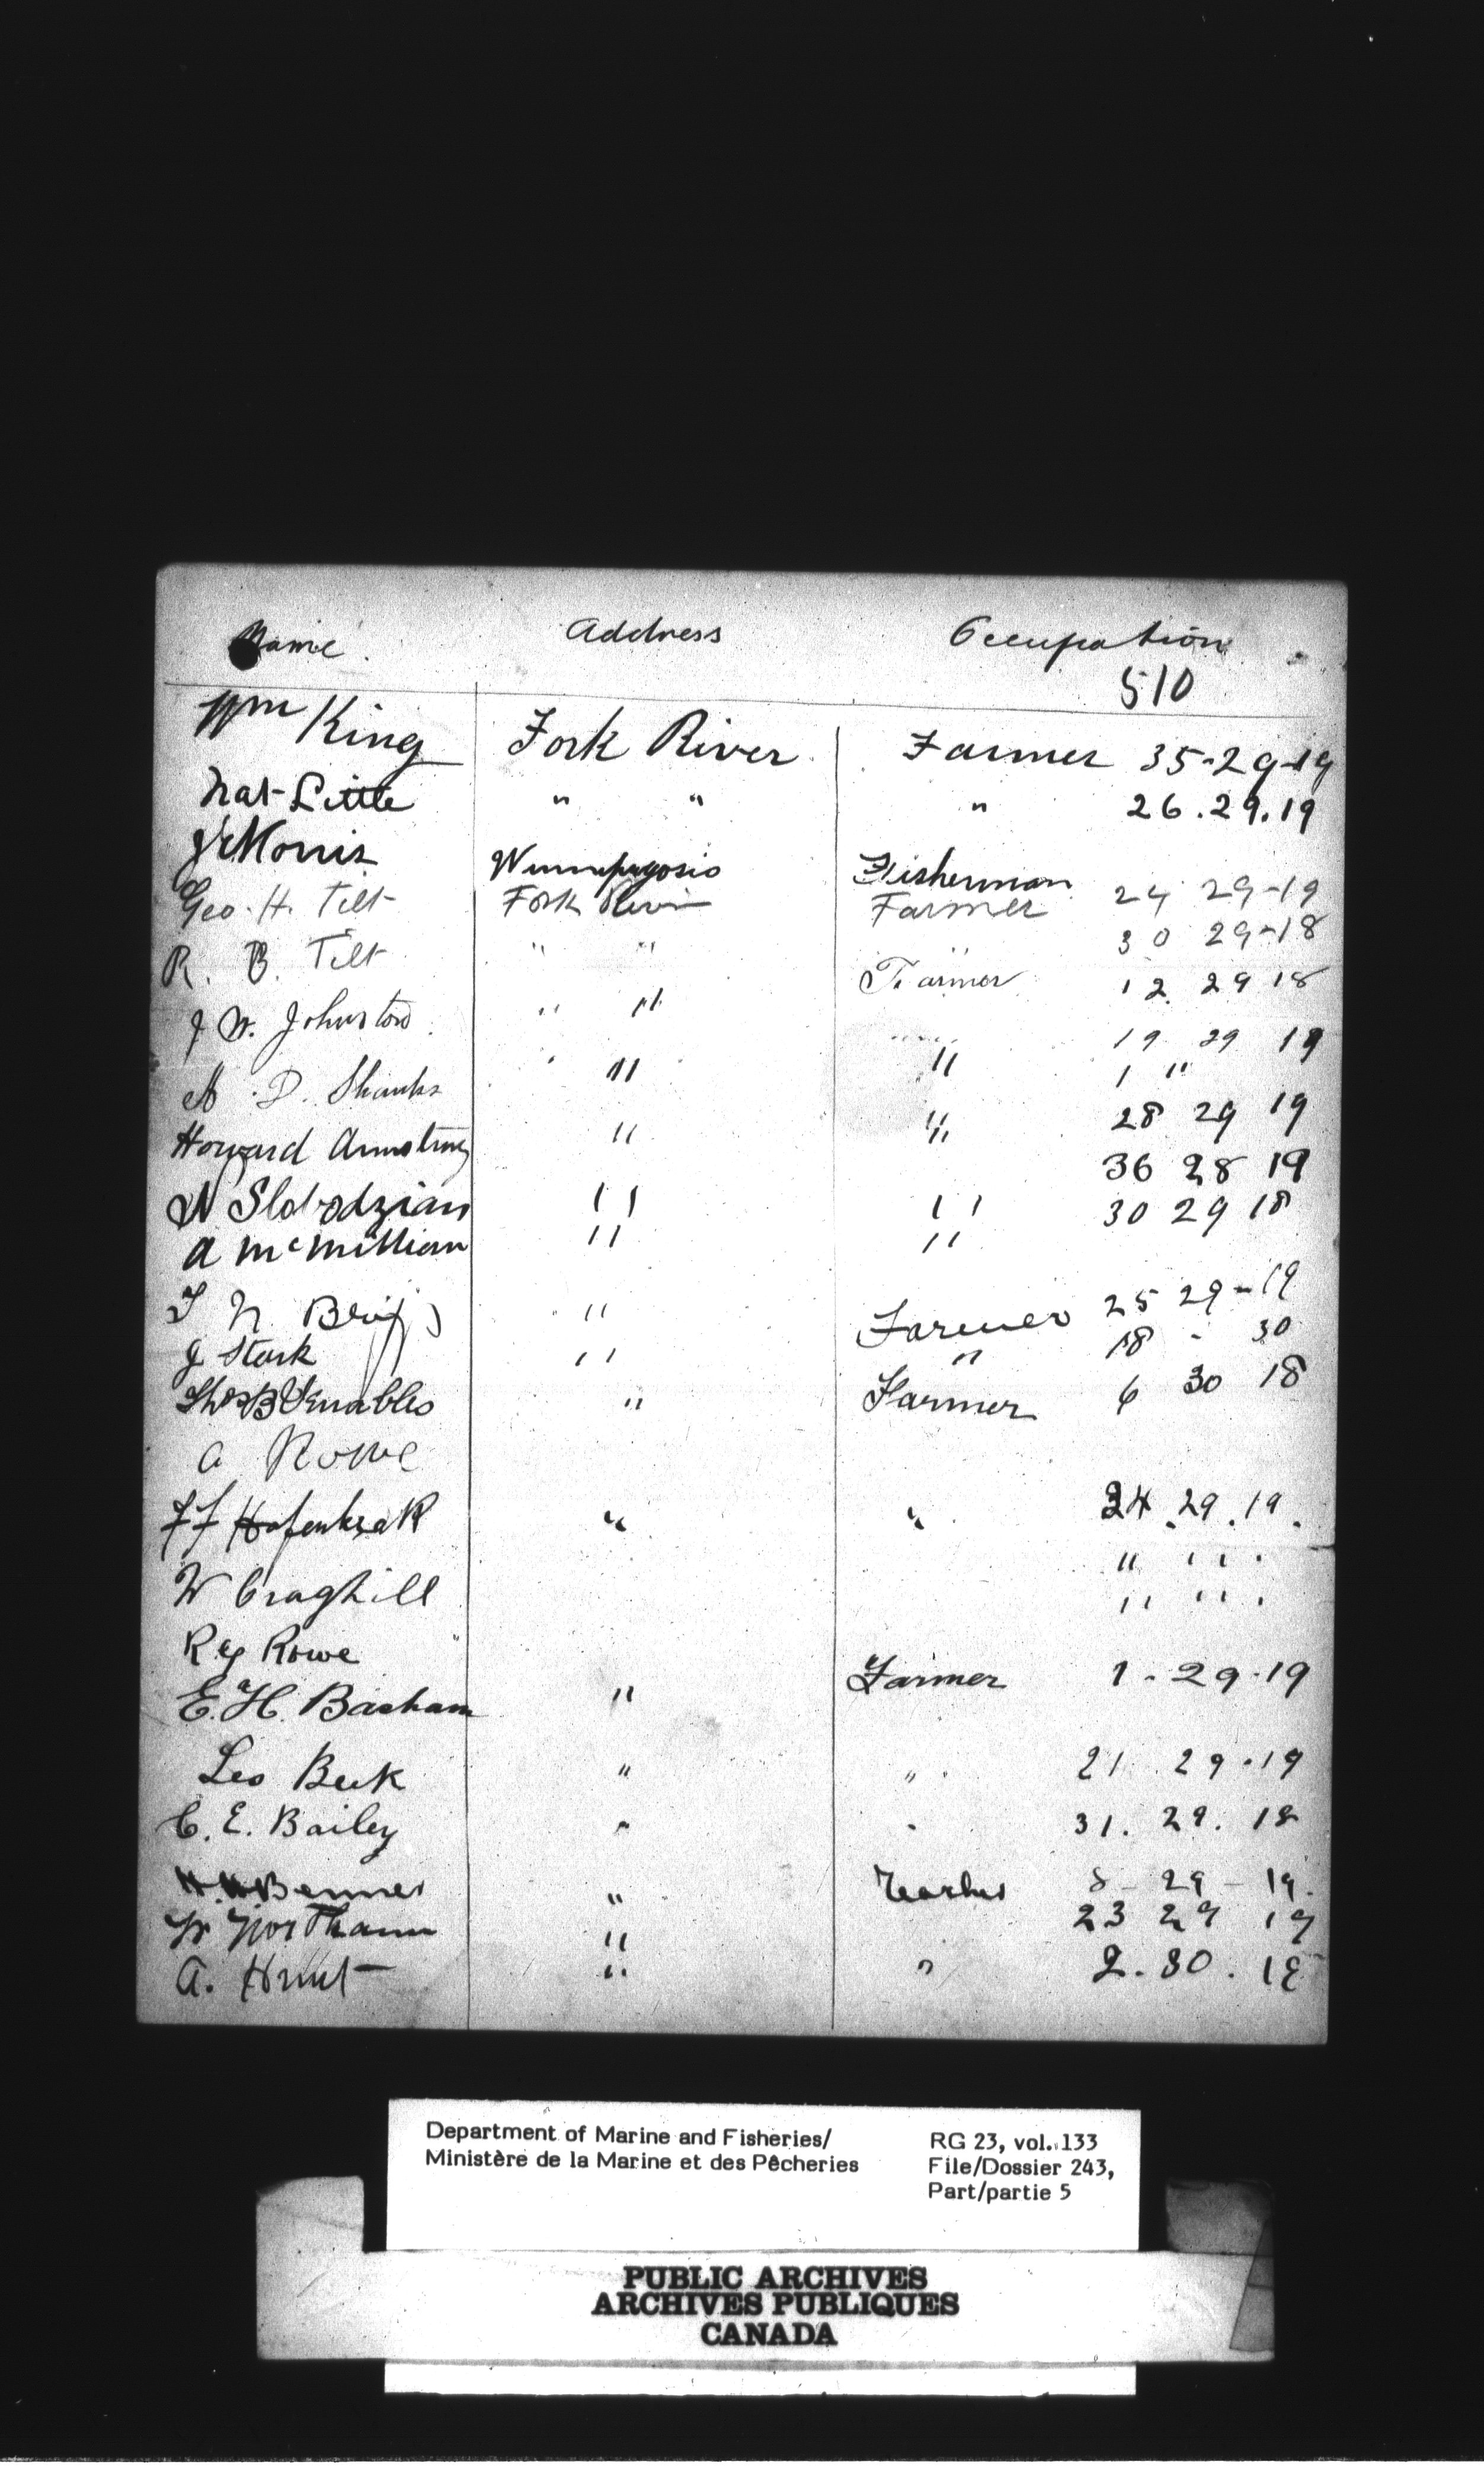 Name Address Occupation
510
Wm King Fork River Farmer 35-29-19
Nat Little " " " 26.29.19
J Morris Winnipegosis Fisherman
Geo. H. Tilt Fork River Farmer 24 29-19
R. B. Tilt " " 30 29-18
J W. Johnston " " Farmer 12 29 18
19 29 19
A. D. Shanks " " " 1 "
Howard Armstrong " " 28 29 19
36 28 19
N Slobodzian " " 30 29 18
A McMillian " "
T N Briggs " Farmer 25 29-19
J Stark " " 18 - 30
Thos B Venables " Farmer 6 30 18
A Rowe
FF Hafenbrak " " 24.29.19.
W Craghill " " "
R G Rowe " " "
E. H. Basham " Farmer 1-29-19
Leo Beck " " 21 29-19
C. E. Bailey " " 31. 29. 18
Benner " Teacher 8-29-19.
W Northam " 23 29 19
A. Hunt " " 2.30.18
Department of Marine and Fisheries/ RG 23, vol. 133
Ministère de la Marine et des Pêcheries File/Dossier 243,
Part/partie 5
PUBLIC ARCHIVES
ARCHIVES PUBLIQUES
CANADA